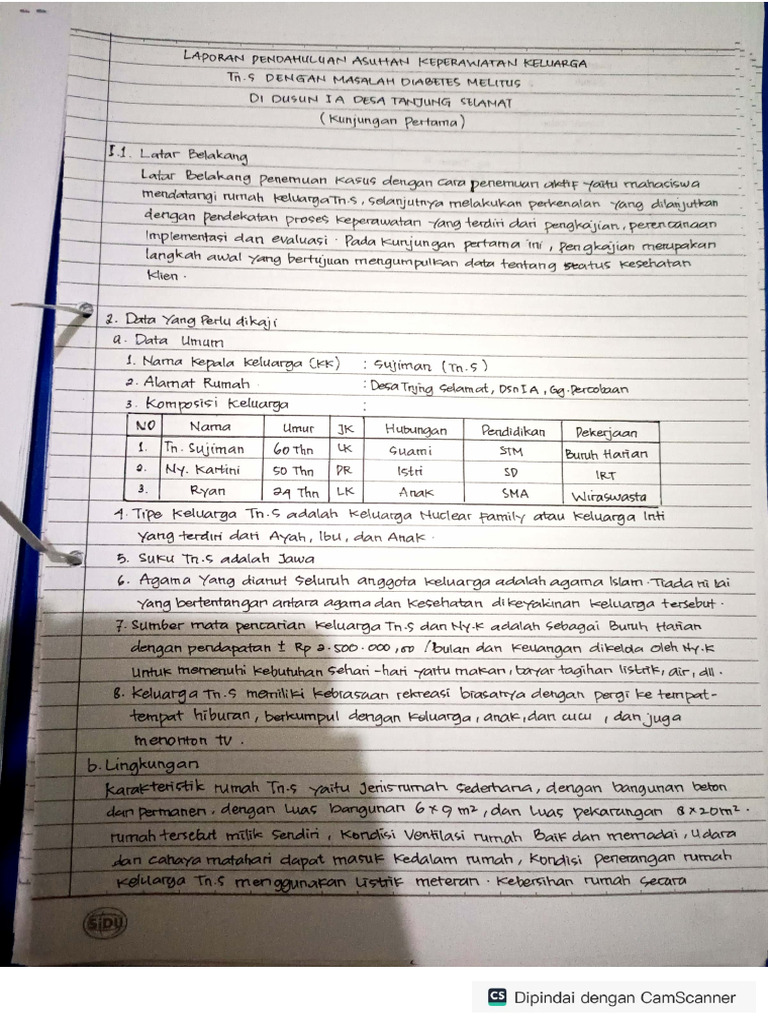 LAPORAN PENDAHULUAN ASUHAN KEPERAWATAN KELUARGA
Tn.S DENGAN MASALAH DIABETES MELITUS
DI DUSUN IA DESA TANJUNG SELAMAT
(Kunjungan Pertama)
I.1. Latar Belakang
Latar Belakang penemuan kasus dengan cara penemuan aktif yaitu mahasiswa
mendatangi rumah keluarga Tn.S, selanjutnya melakukan perkenalan yang dilanjutkan
dengan pendekatan proses keperawatan yang terdiri dari pengkajian, perencanaan
implementasi dan evaluasi. Pada kunjungan pertama ini, pengkajian merupakan
langkah awal yang bertujuan mengumpulkan data tentang status kesehatan
klien.
2. Data Yang Perlu dikaji
a. Data Umum
1. Nama kepala keluarga (KK) : Sujiman (Tn.S)
2. Alamat Rumah : Desa Tnjng Selamat, Dsn IA, Gg. Percobaan
3. Komposisi Keluarga :
NO Nama Umur JK Hubungan Pendidikan Pekerjaan
1. Tn. Sujiman 60 Thn LK Suami STM Buruh Harian
2. Ny. Kartini 50 Thn PR Istri SD IRT
3. Ryan 24 Thn LK Anak SMA Wiraswasta
4. Tipe Keluarga Tn.S adalah Keluarga Nuclear Family atau Keluarga Inti
yang terdiri dari Ayah, Ibu, dan Anak.
5. Suku Tn.S adalah Jawa
6. Agama Yang dianut seluruh anggota keluarga adalah agama Islam. Tiada nilai
yang bertentangan antara agama dan kesehatan dikeyakinan keluarga tersebut.
7. Sumber mata pencarian keluarga Tn.S dan Ny.K adalah sebagai Buruh Harian
dengan pendapatan ± Rp 2.500.000,00 /bulan dan keuangan dikelola oleh Ny.K
untuk memenuhi kebutuhan sehari-hari yaitu makan, bayar tagihan listrik, air, dll.
8. Keluarga Tn.S memiliki kebiasaan rekreasi biasanya dengan pergi ke tempat-
tempat hiburan, berkumpul dengan keluarga, anak, dan cucu, dan juga
menonton tv.
b. Lingkungan
Karakteristik rumah Tn.S yaitu Jenis rumah sederhana, dengan bangunan beton
dan permanen, dengan Luas bangunan 6 x 9 m², dan Luas pekarangan 8 x 20 m².
rumah tersebut milik sendiri, kondisi Ventilasi rumah Baik dan memadai, udara
dan cahaya matahari dapat masuk kedalam rumah, kondisi penerangan rumah
keluarga Tn.S menggunakan Listrik meteran. Kebersihan rumah secara
SiDU
CS Dipindai dengan CamScanner